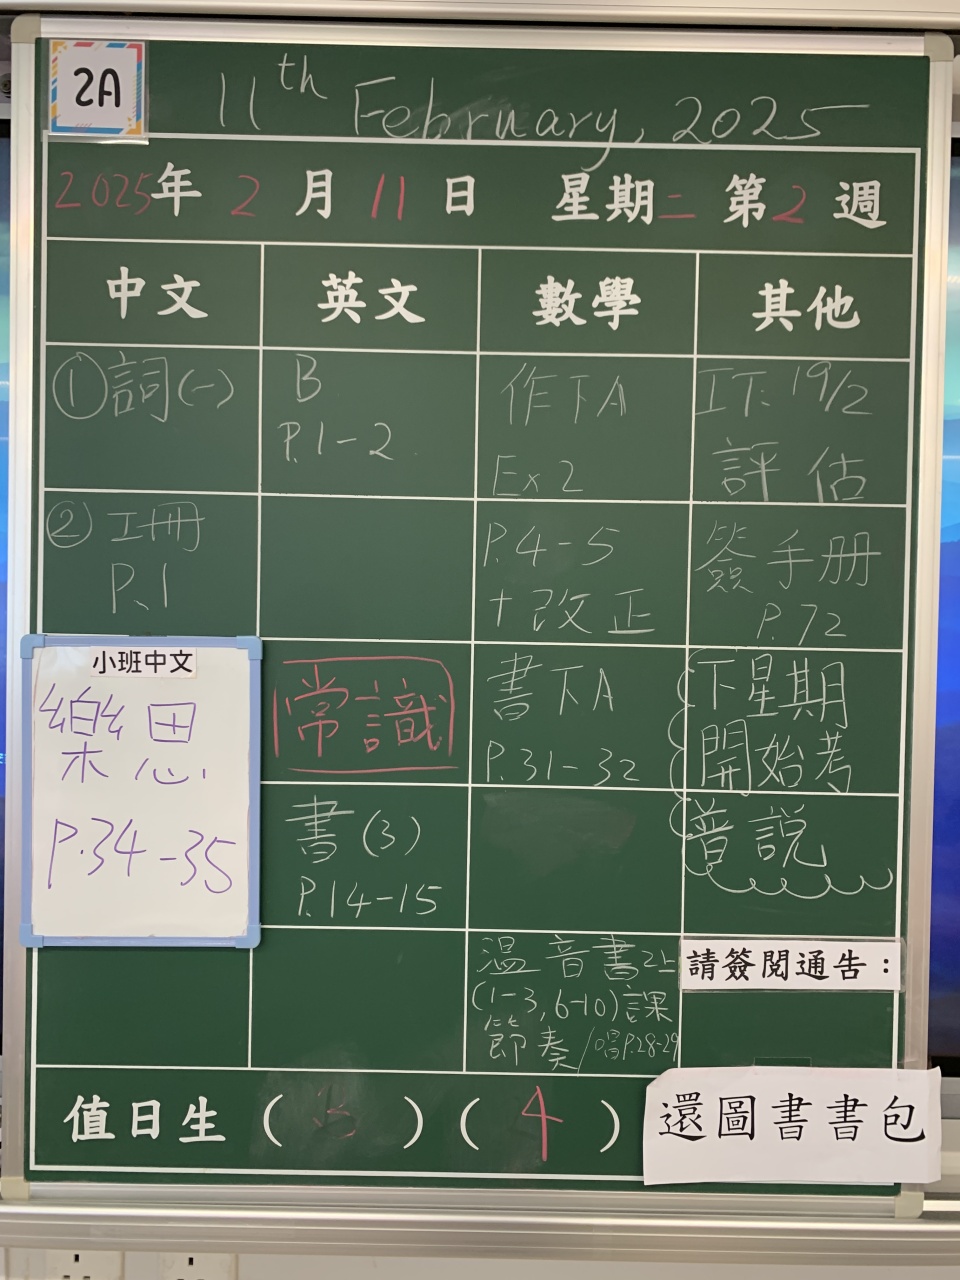 2A
11th February, 2025
2025年 2 月 11 日 星期二 第2 週
中文 英文 數學 其他
①詞(一)
②工冊
P.1
小班中文
樂思
P.34-35
B
P.1-2
常識
書(3)
P.14-15
作下A
Ex 2
P.4-5
+改正
書下A
P.31-32
溫音書2上
(1-3,6-10)課
節奏/唱P.28-29
工下 19/2
評估
簽手册
P.72
下星期
開始考
普說
請簽閱通告：
值日生( )(4)
還圖書書包